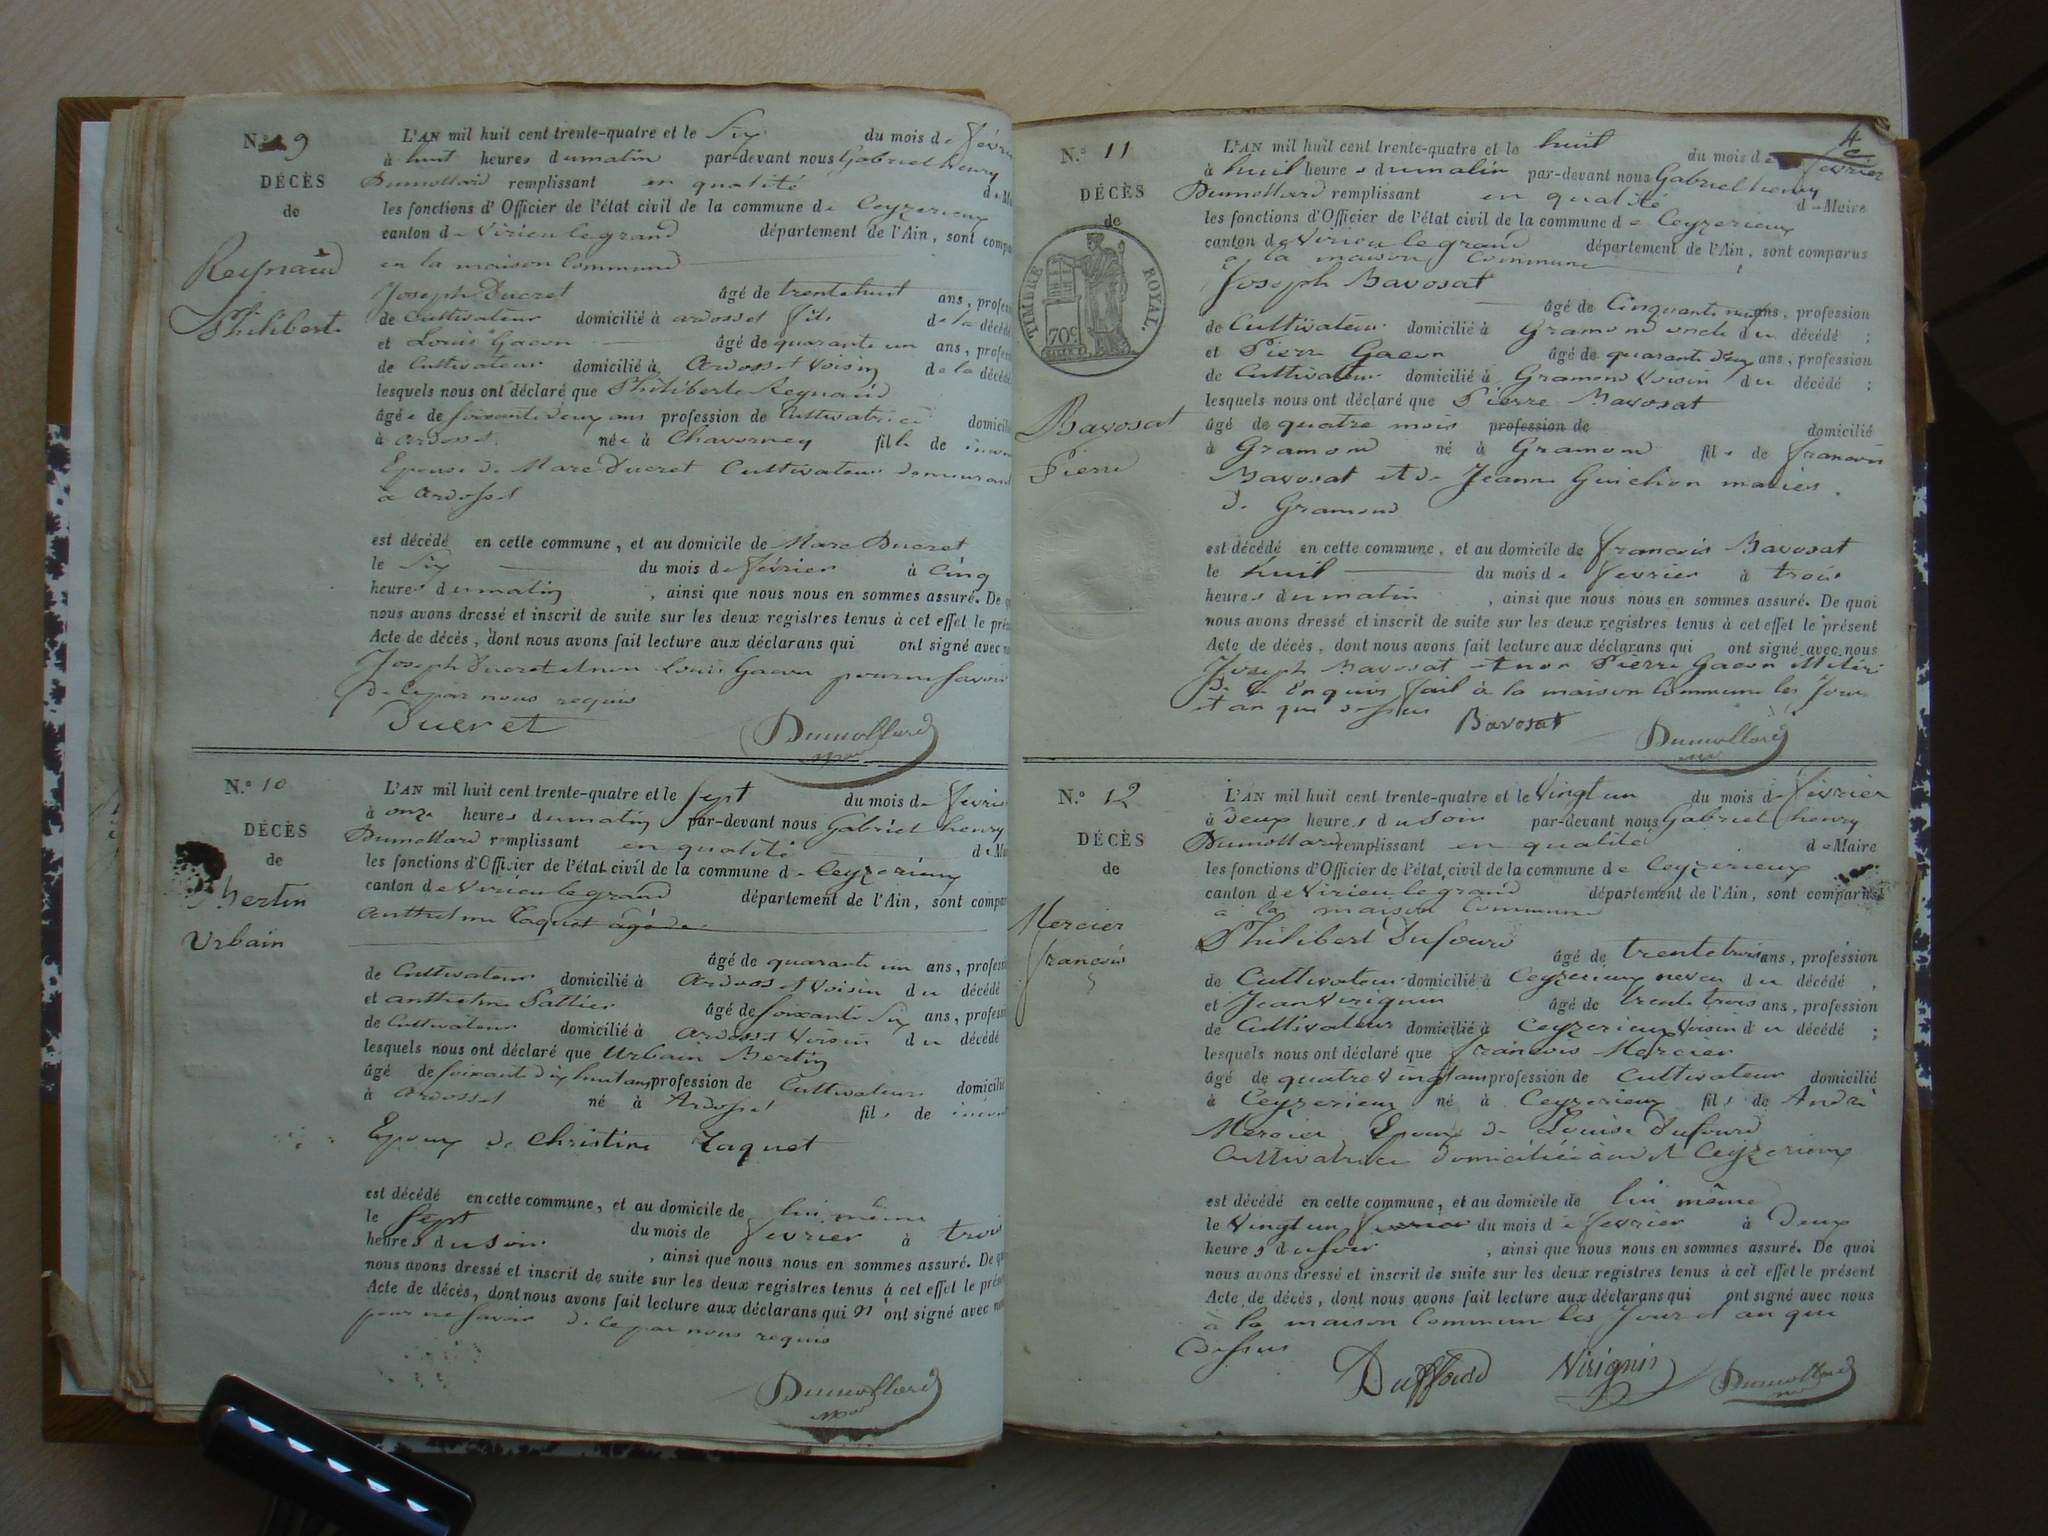 N.º 9
DÉCÈS
de
Reynaud
Philiberte
L'AN mil huit cent trente-quatre et le Six du mois de févri
à huit heures du matin par-devant nous Gabriel henry
Dumollard remplissant en qualité de Ma
les fonctions d'Officier de l'état civil de la commune de Ceyzerieux
canton de Virieu le grand département de l'Ain, sont compa
en la maison Commune
Joseph Ducret âgé de trente huit ans, profes
de Cultivateur domicilié à ardosset fils de la décéd
et Louis Gacon âgé de quarante un ans, profes
de Cultivateur domicilié à Ardosset Voisin de la décéd
lesquels nous ont déclaré que Philiberte Reynaud
âgée de soixante deux ans profession de Cultivatrice domicil
à ardosset née à Chavorney fille de
Epouse de Marc Ducret Cultivateur demeurant
à Ardosset
est décédé en cette commune, et au domicile de Marc Ducret
le Six du mois de février à Cinq
heures du matin, ainsi que nous nous en sommes assuré. De q
nous avons dressé et inscrit de suite sur les deux registres tenus à cet effet le prés
Acte de décès, dont nous avons fait lecture aux déclarans qui ont signé avec n
Joseph Ducret et non Louis Gacon pour ne savoir
de ce par nous requis
Ducret Dumollard
N.º 10
DÉCÈS
de
Bertin
Urbain
L'AN mil huit cent trente-quatre et le sept du mois de févrie
à onze heures du matin par-devant nous Gabriel henry
Dumollard remplissant en qualité de Ma
les fonctions d'Officier de l'état civil de la commune de Ceyzerieux
canton de Virieu le grand département de l'Ain, sont compar
anthelme Taquet âgé de
âgé de quarante un ans, profess
de Cultivateur domicilié à Ardosset Voisin du décédé
et anthelme Sattier âgé de soixante Six ans, profess
de Cultivateur domicilié à Ardosset Voisin du décédé
lesquels nous ont déclaré que Urbain Bertin
âgé de soixante dix huit ans profession de Cultivateur domicilié
à ardosset né à Ardosset fils de
Epoux de Christine Taquet
est décédé en cette commune, et au domicile de lui même
le sept du mois de février à trois
heures du Soir, ainsi que nous nous en sommes assuré. De q
nous avons dressé et inscrit de suite sur les deux registres tenus à cet effet le prése
Acte de décès, dont nous avons fait lecture aux déclarans qui n'ont signé avec no
pour ne savoir de ce par nous requis
Dumollard
4
N.º 11
DÉCÈS
de
TIMBRE ROYAL.
70c
Bavosat
Pierre
L'AN mil huit cent trente-quatre et le huit du mois de février
à huit heures du matin par-devant nous Gabriel henry
Dumollard remplissant en qualité de Maire
les fonctions d'Officier de l'état civil de la commune de Ceyzerieux
canton de Virieu le grand département de l'Ain, sont comparus
à la maison Commune
Joseph Bavosat
âgé de Cinquante neuf ans, profession
de Cultivateur domicilié à Gramond oncle du décédé ;
et Pierre Gacon âgé de quarante deux ans, profession
de Cultivateur domicilié à Gramond Voisin du décédé ;
lesquels nous ont déclaré que Pierre Bavosat
âgé de quatre mois profession de domicilié
à Gramond né à Gramond fils de francois
Bavosat et de Jeanne Guichon mariés
de Gramond
est décédé en cette commune, et au domicile de francois Bavosat
le huit du mois de fevrier à trois
heures du matin, ainsi que nous nous en sommes assuré. De quoi
nous avons dressé et inscrit de suite sur les deux registres tenus à cet effet le présent
Acte de décès, dont nous avons fait lecture aux déclarans qui ont signé avec nous
Joseph Bavosat et non Pierre Gacon
de ce Enquis fait à la maison Commune les Jour
et an que dessus
Bavosat Dumollard
N.º 12
DÉCÈS
de
Mercier
francois
L'AN mil huit cent trente-quatre et le Vingt un du mois de février
à Deux heures du Soir par-devant nous Gabriel henry
Dumollard remplissant en qualité de Maire
les fonctions d'Officier de l'état civil de la commune de Ceyzerieux
canton de Virieu le grand département de l'Ain, sont comparus
à la maison Commune
Philibert Dufourd âgé de trente trois ans, profession
de Cultivateur domicilié à Ceyzerieux neveu du décédé
et Jean Virignin âgé de trente trois ans, profession
de Cultivateur domicilié à Ceyzerieux Voisin du décédé ;
lesquels nous ont déclaré que francois Mercier
âgé de quatre Vingt ans profession de Cultivateur domicilié
à Ceyzerieux né à Ceyzerieux fils de André
Mercier Epoux de Louise Dufourd
Cultivatrice domiciliée au dt Ceyzerieux
est décédé en cette commune, et au domicile de lui même
le Vingt un fevrier du mois de fevrier à Deux
heures du soir, ainsi que nous nous en sommes assuré. De quoi
nous avons dressé et inscrit de suite sur les deux registres tenus à cet effet le présent
Acte de décès, dont nous avons fait lecture aux déclarans qui ont signé avec nous
à la maison Commune les Jour et an que
dessus
Duffourd Virignin Dumollard